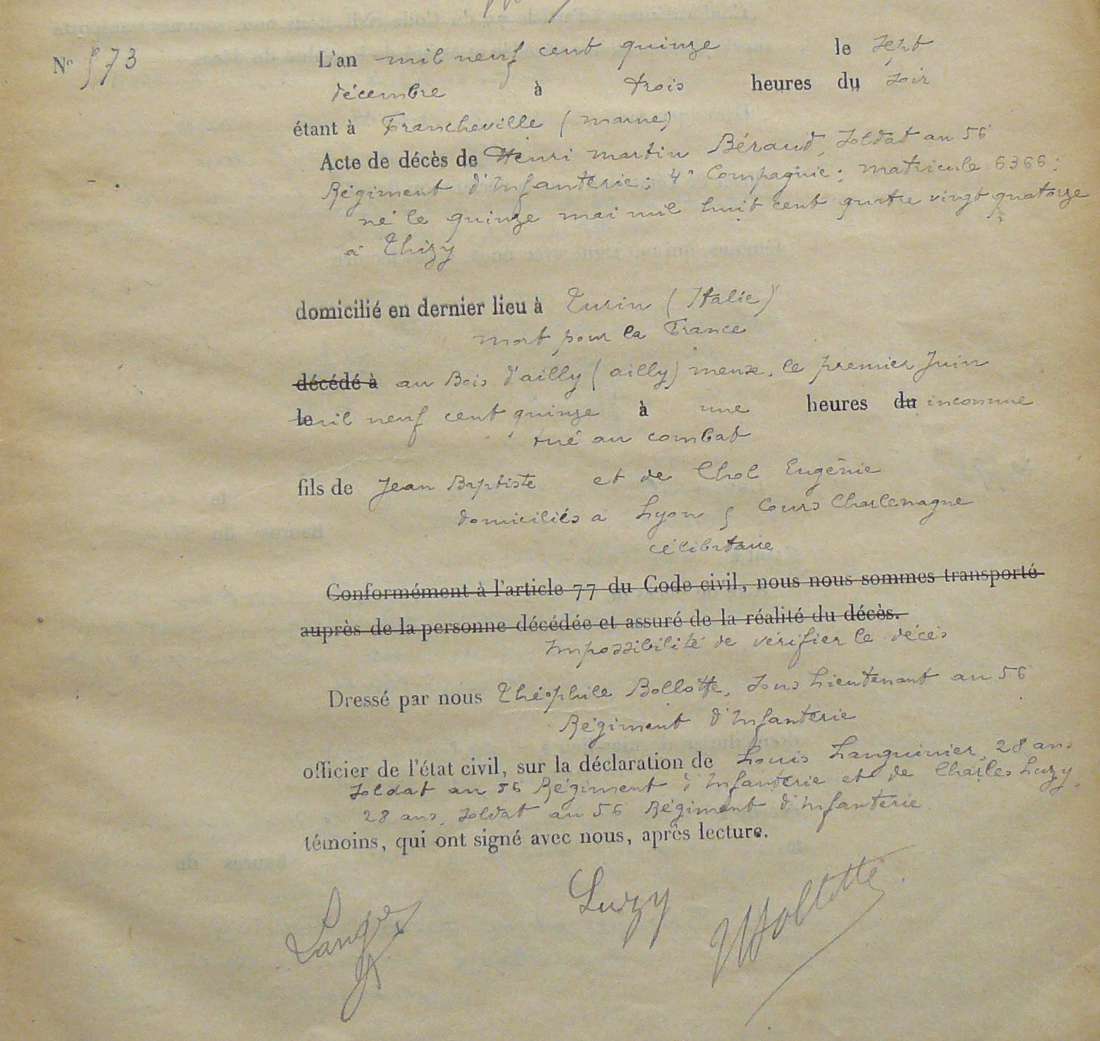 N° 573
L'an mil neuf cent quinze le sept
décembre à trois heures du soir
étant à Francheville (marne)
Acte de décès de Henri Martin Béraud, Soldat au 56
Régiment d'Infanterie; 4e Compagnie; matricule 6366;
né le quinze mai mil huit cent quatre vingt quatorze
à Thizy
domicilié en dernier lieu à Turin (Italie)
Mort pour la France
décédé à au Bois d'ailly (ailly) meuse, le premier Juin
le mil neuf cent quinze à une heures du inconnue
tué au combat
fils de Jean Baptiste et de Chol Eugénie
domiciliés a Lyon 5 Cours Charlemagne
célibataire
Conformément à l'article 77 du Code civil, nous nous sommes transporté
auprès de la personne décédée et assuré de la réalité du décès.
Impossibilité de vérifier le décès
Dressé par nous Théophile Bollotte, Sous Lieutenant au 56
Régiment d'Infanterie
officier de l'état civil, sur la déclaration de Louis Languinier, 28 ans
Soldat au 56 Régiment d'Infanterie et de Charles Luzy,
28 ans, Soldat au 56 Régiment d'Infanterie
témoins, qui ont signé avec nous, après lecture.
Luzy